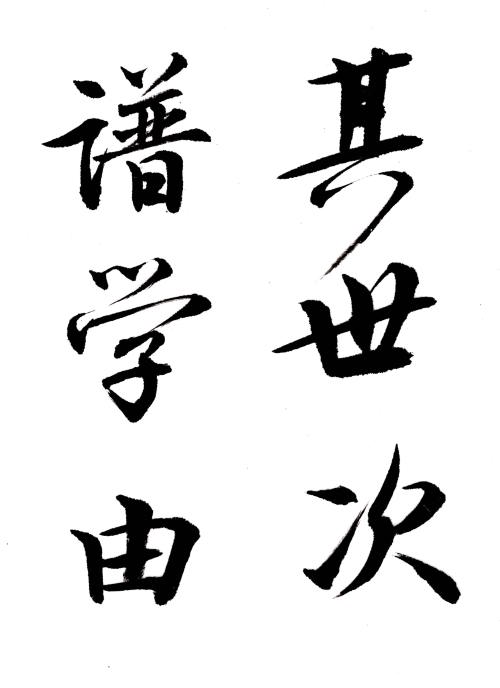 其世次
谱学由